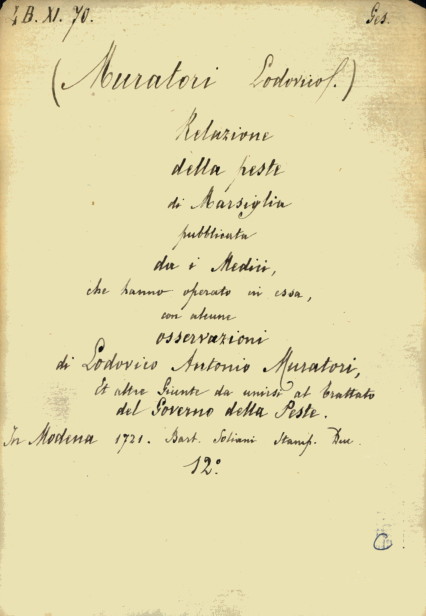 B. XI. 70. Ges.
(Muratori Lodovico.)
Relazione
della peste
di Marsiglia
pubblicata
da i Medici,
che hanno operato in essa,
con alcune
osservazioni
di Lodovico Antonio Muratori,
Et altre Giunte da unirsi al trattato
del Governo della Peste.
In Modena 1721. Bart. Soliani Stamp. Duc.
12º
C